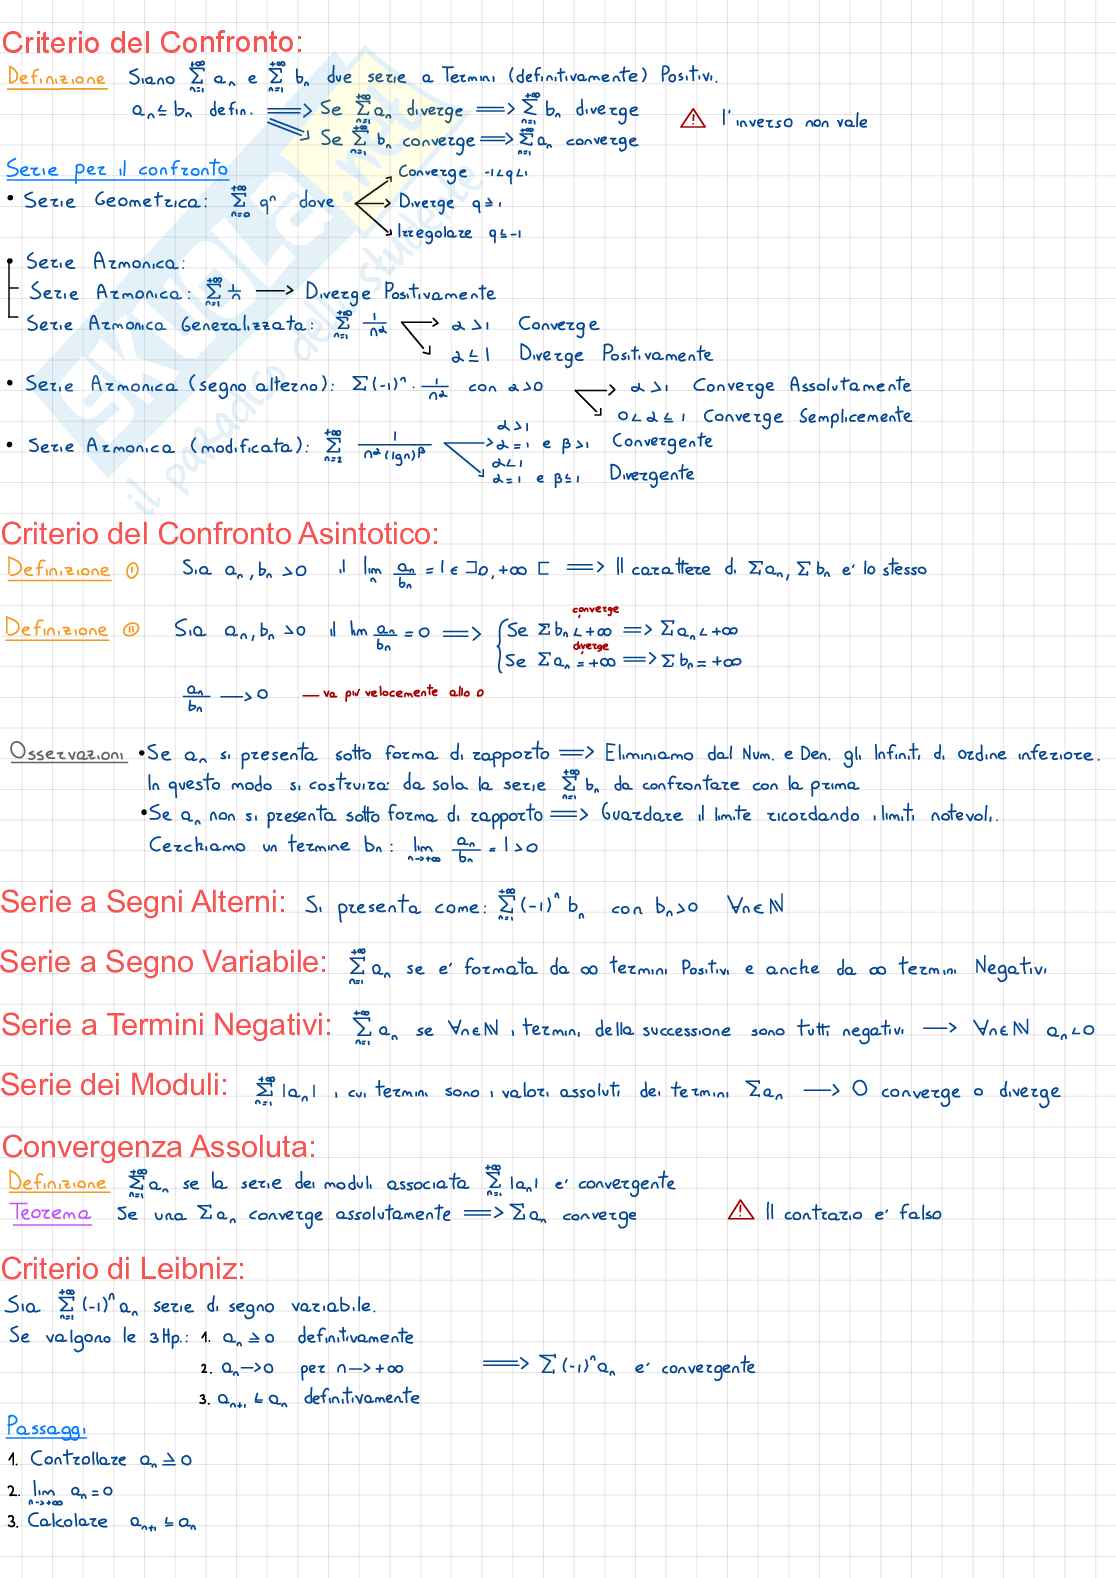 Criterio del Confronto:
Definizione Siano +∞ Σ n=1 aₙ e +∞ Σ n=1 bₙ due serie a Termini (definitivamente) Positivi.
aₙ ≤ bₙ defin. ⟹ Se +∞ Σ n=1 aₙ diverge ⟹ +∞ Σ n=1 bₙ diverge
⟹ Se +∞ Σ n=1 bₙ converge ⟹ +∞ Σ n=1 aₙ converge
⚠ l'inverso non vale
Serie per il confronto
• Serie Geometrica: +∞ Σ n=0 qⁿ dove
Converge -1<q<1
Diverge q≥1
Irregolare q≤-1
• Serie Armonica:
Serie Armonica: +∞ Σ n=1 1/n ⟶ Diverge Positivamente
Serie Armonica Generalizzata: +∞ Σ n=1 1/n^α → α>1 Converge
α≤1 Diverge Positivamente
• Serie Armonica (segno alterno): Σ(-1)ⁿ · 1/n^α con α>0 → α>1 Converge Assolutamente
0<α≤1 Converge Semplicemente
• Serie Armonica (modificata): +∞ Σ n=2 1/n^α(lgn)^β
α>1
α=1 e β>1 Convergente
α<1
α=1 e β≤1 Divergente
Criterio del Confronto Asintotico:
Definizione I Sia aₙ, bₙ >0 il lim n aₙ/bₙ = l ∈ ]0, +∞[ ⟹ Il carattere di Σaₙ, Σbₙ e' lo stesso
Definizione II Sia aₙ, bₙ >0 il lim aₙ/bₙ = 0 ⟹ {
converge
Se Σbₙ < +∞ ⟹ Σaₙ < +∞
diverge
Se Σaₙ = +∞ ⟹ Σbₙ = +∞
aₙ/bₙ ⟶ 0 — va più velocemente allo 0
Osservazioni • Se aₙ si presenta sotto forma di rapporto ⟹ Eliminiamo dal Num. e Den. gli Infiniti di ordine inferiore.
In questo modo si costruira' da sola la serie +∞ Σ n=1 bₙ da confrontare con la prima
• Se aₙ non si presenta sotto forma di rapporto ⟹ Guardare il limite ricordando i limiti notevoli.
Cerchiamo un termine bₙ: lim n→+∞ aₙ/bₙ = l>0
Serie a Segni Alterni: Si presenta come: +∞ Σ n=1 (-1)ⁿ bₙ con bₙ>0 ∀n∈ℕ
Serie a Segno Variabile: +∞ Σ n=1 aₙ se e' formata da ∞ termini Positivi e anche da ∞ termini Negativi
Serie a Termini Negativi: +∞ Σ n=1 aₙ se ∀n∈ℕ i termini della successione sono tutti negativi ⟶ ∀n∈ℕ aₙ<0
Serie dei Moduli: +∞ Σ n=1 |aₙ| i cui termini sono i valori assoluti dei termini Σaₙ ⟶ O converge o diverge
Convergenza Assoluta:
Definizione +∞ Σ n=1 aₙ se la serie dei moduli associata +∞ Σ n=1 |aₙ| e' convergente
Teorema Se una Σaₙ converge assolutamente ⟹ Σaₙ converge ⚠ Il contrario e' falso
Criterio di Leibniz:
Sia +∞ Σ n=1 (-1)ⁿaₙ serie di segno variabile.
Se valgono le 3 Hp.: 1. aₙ ≥ 0 definitivamente
2. aₙ⟶0 per n⟶+∞ ⟹ Σ(-1)ⁿaₙ e' convergente
3. aₙ₊₁ ≤ aₙ definitivamente
Passaggi
1. Controllare aₙ ≥ 0
2. lim n→+∞ aₙ = 0
3. Calcolare aₙ₊₁ ≤ aₙ
SKUOLA.net
il paradiso dello studente